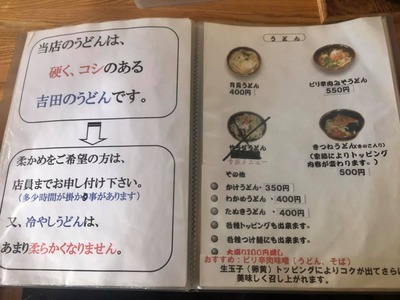 当店のうどんは、
硬く、コシのある
吉田のうどんです。
柔かめをご希望の方は、
店員までお申し付け下さい。
(多少時間が掛かる事があります)
又、冷やしうどんは、
あまり柔らかくなりません。
うどん
400円
ピリ辛肉みそうどん
550円
きつねうどん
(季節によりトッピング
内容が変わります。)
500円
その他
・かけうどん・350円
・わかめうどん・・400円
・たぬきうどん・・400円
・各種トッピングも出来ます。
・各種つけ麺にも出来ます。
・大盛り100円増し
おすすめ:ピリ辛肉味噌(うどん、そば)
生玉子(卵黄)トッピングによりコクが出てさらに
美味しく召し上がれます。